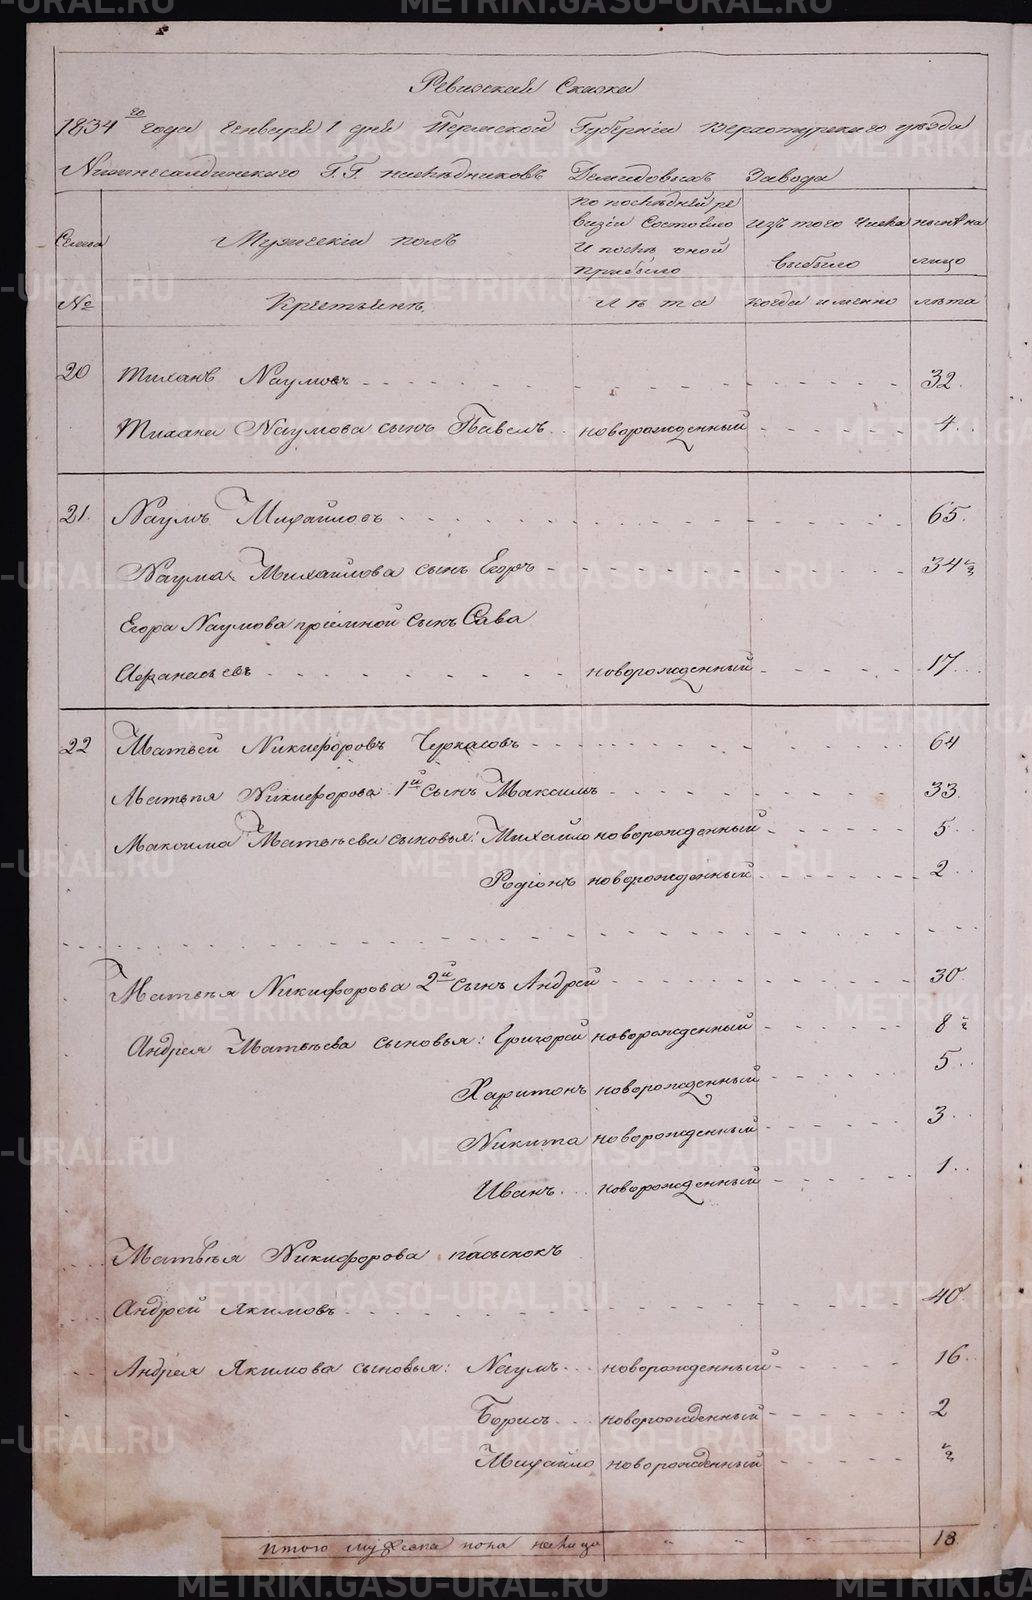 Ревизская Сказка
1834го года Генваря 1 дня Пермской Губернiи Верхотурскаго уѣзда
Нижнесалдинскаго Г.Г. наслѣдниковъ Демидовыхъ Завода
Семьи
Мужескiй полъ
по послѣдней ре
визiи состояло
и послѣ оной
прибыло
изъ того числа
выбыло
нынѣ на
лицо
№
Крестьянъ.
лѣта
когда именно
лѣта
20 Тиханъ Наумовъ 32.
Тихана Наумова сынъ Павелъ новорожденный 4.
21. Наумъ Михайловъ 65.
Наума Михайлова сынъ Егоръ 34½
Егора Наумова прiемной сынъ Сава
Афанасьевъ новорожденный 17
22 Матвей Никифоровъ Черкасовъ 64
Матвѣя Никифорова 1й сынъ Максимъ 33.
Максима Матвѣева сыновья: Михайло новорожденный 5
Родiонъ новорожденный 2
Матвѣя Никифорова 2й сынъ Андрей 30
Андрея Матвѣева сыновья: Григорей новорожденный 8½
Харитонъ новорожденный 5
Никита новорожденный 3
Иванъ новорожденный 1
Матвѣя Никифорова пасынокъ
Андрей Якимовъ 40
Андрея Якимова сыновья: Наумъ новорожденный 16
Борисъ новорожденный 2
Михайло новорожденный ½
Итого мужеска пола налицо " " 18.
METRIKI.GASO-URAL.RU